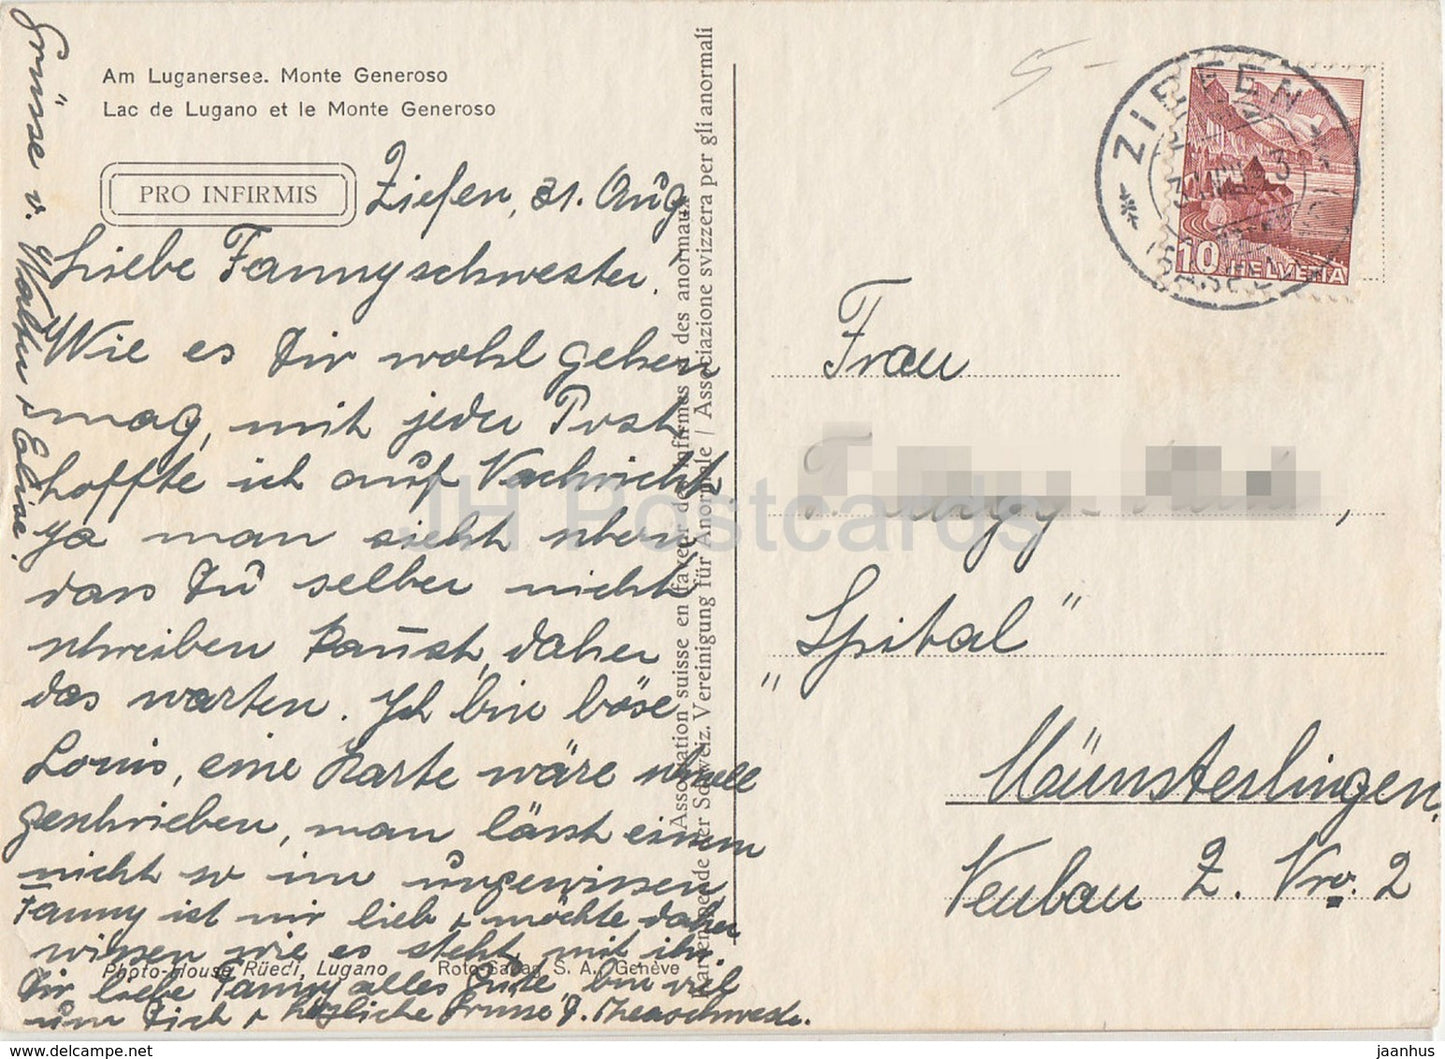 Am Luganersee. Monte Generoso
Lac de Lugano et le Monte Generoso
PRO INFIRMIS
Ziefen, 31. Aug.
Liebe Fannyschwester.
Wie es Dir wohl gehen
mag, mit jeder Post
hoffte ich auf Nachricht
ja man sieht eben
dass Du selber nicht
schreiben kannst, daher
das warten. Ich bin böse
Louis, eine Karte wäre schnell
geschrieben, man lässt einem
nicht so im ungewissen
Fanny ist mir lieb & möchte daher
wissen wie es steht mit ihr.
Dir liebe Fanny alles Gute, bin viel
um Dich & herzliche Grüsse
Grüsse v. Walter & Elise.
Photo-House Rüedi, Lugano
Roto-Sadag S. A., Genève
Association suisse en faveur des infirmes et des anormaux
Kartenspende der Schweiz. Vereinigung für Anormale / Associazione svizzera per gli anormali
5-
ZIEFEN
10 HELVETIA
Frau
"Spital"
Münsterlingen.
Neubau Z. Nro. 2
JH Postcards
https://www.delcampe.net
jaanhuss